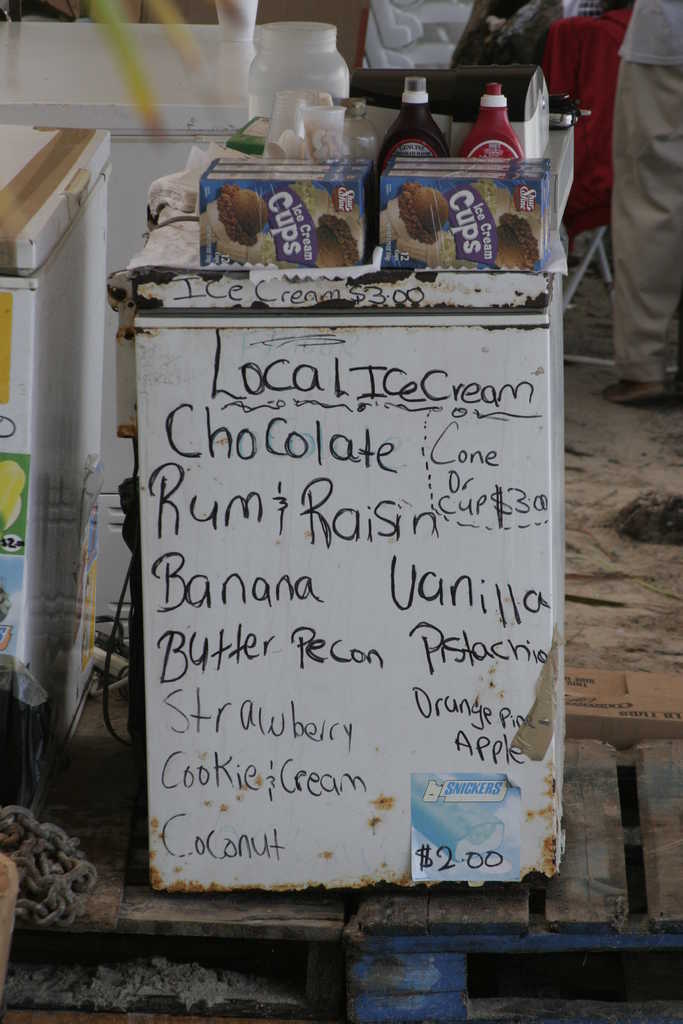 Ice Cream Cups
12
Ice Cream Cups
12
Ice Cream $3.00
Local Ice Cream
Chocolate
Cone
Or
Cup $3.00
Rum & Raisin
Banana
Vanilla
Butter Pecon
Pistachio
Strawberry
Orange Pin
Apple
Cookie & Cream
Coconut
SNICKERS
$2.00